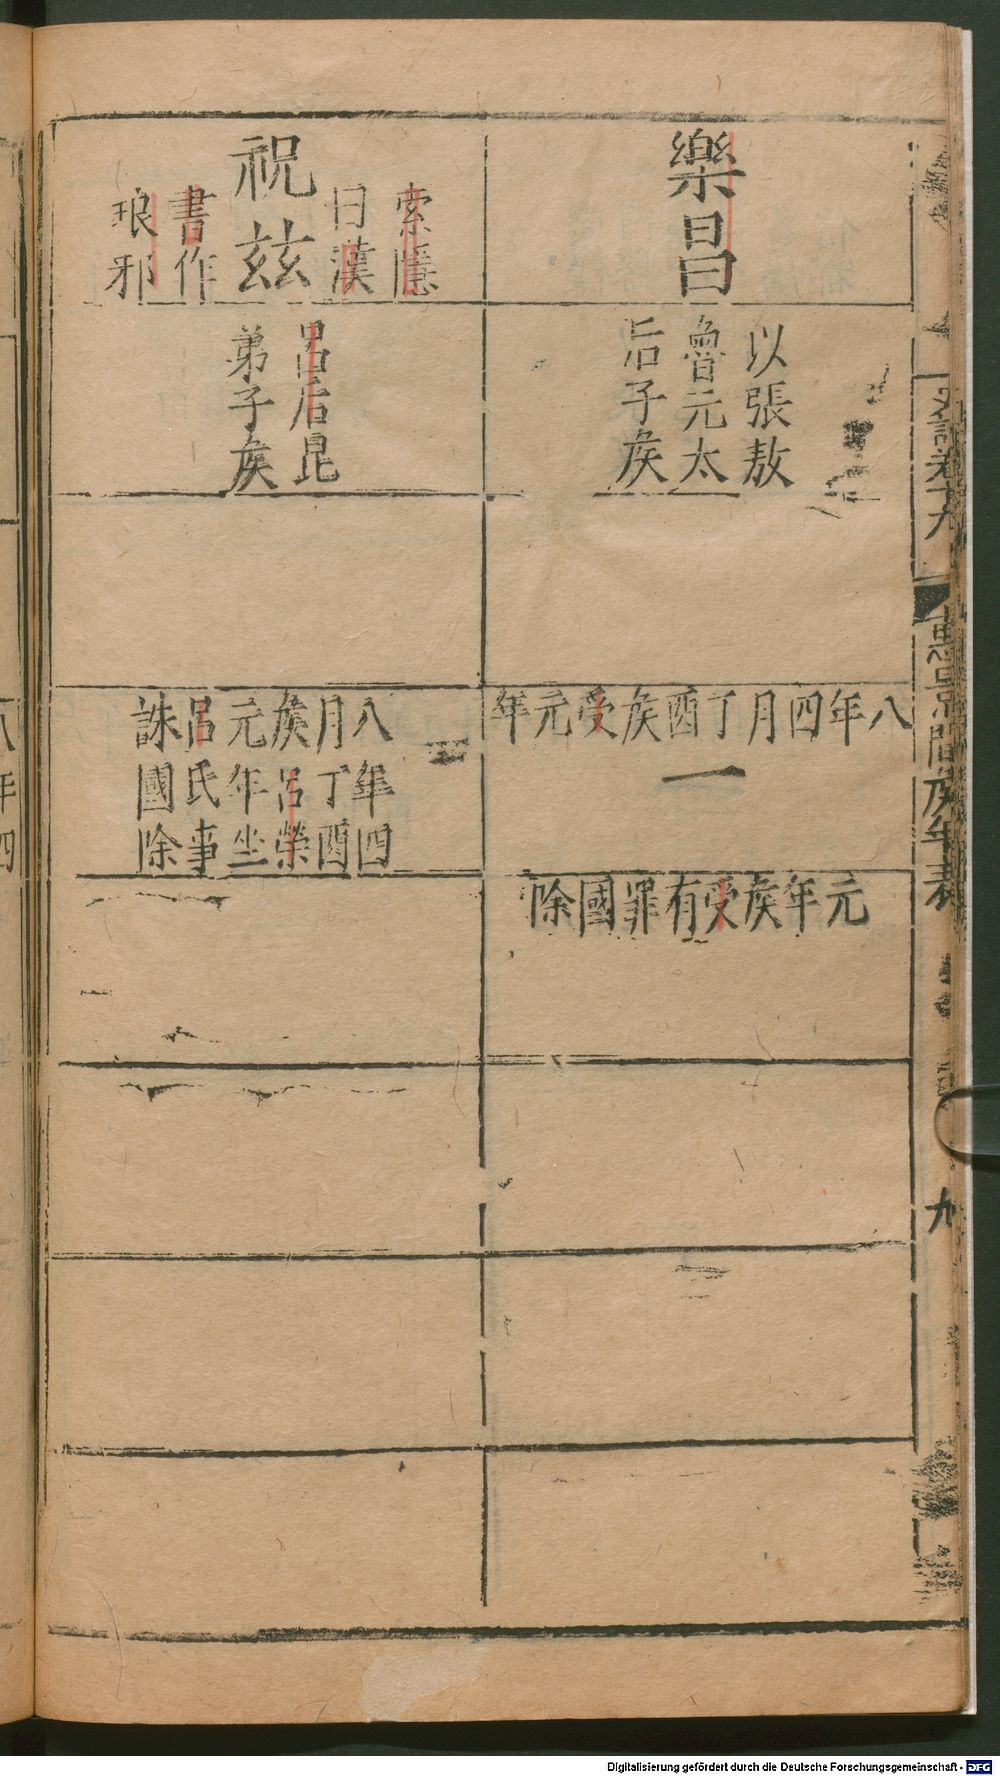 樂昌
以張敖
魯元太
后子矦
八年四月丁酉矦受元年
一
元年矦受有罪國除
祝茲
索隱
曰漢
書作
琅邪
呂后昆
弟子矦
八年四
月丁酉
矦呂榮
元年坐
呂氏事
誅國除
史記卷十九
惠景間矦年表
九
八年四
Digitalisierung gefördert durch die Deutsche Forschungsgemeinschaft - DFG